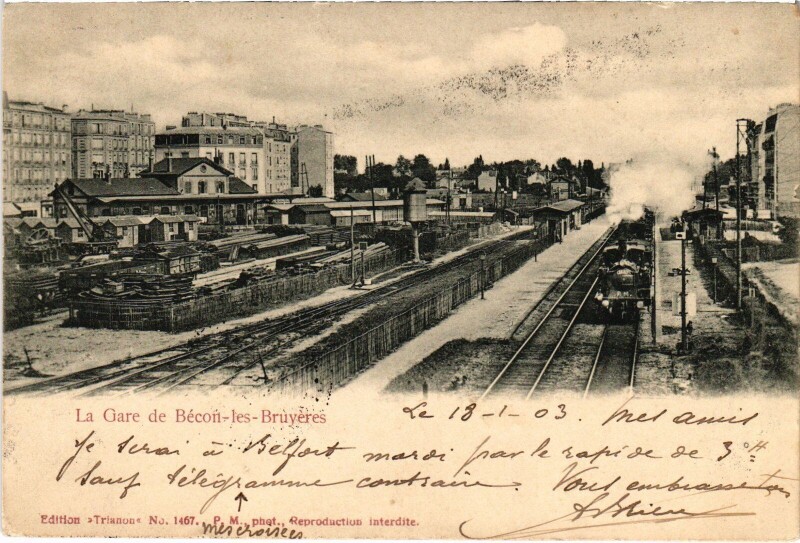 La Gare de Bécon-les-Bruyères
Le 18-1-03. Mes amis
Je serai à Belfort mardi par le rapide de 3H
Sauf télégramme contraire. Vous embrassons
Edition »Trianon« No. 1467. P. M., phot., Reproduction interdite.